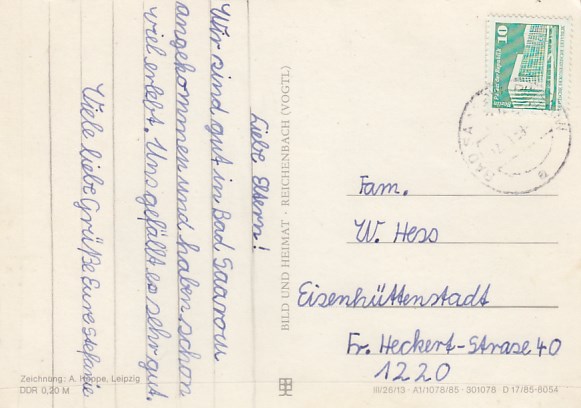 Liebe Eltern!
Wir sind gut in Bad Saarow
angekommen und haben schon
viel erlebt. Uns gefällt es sehr gut.
Viele liebe Grüße Eure Stefanie
BILD UND HEIMAT · REICHENBACH (VOGTL)
10
Berlin, Palast der Republik
Fam.
W. Hess
Eisenhüttenstadt
Fr. Heckert-Strase 40
1220
Zeichnung: A. Hoppe, Leipzig
DDR 0,20 M
III/26/13 · A1/1078/85 · 301078 · D 17/85-6054